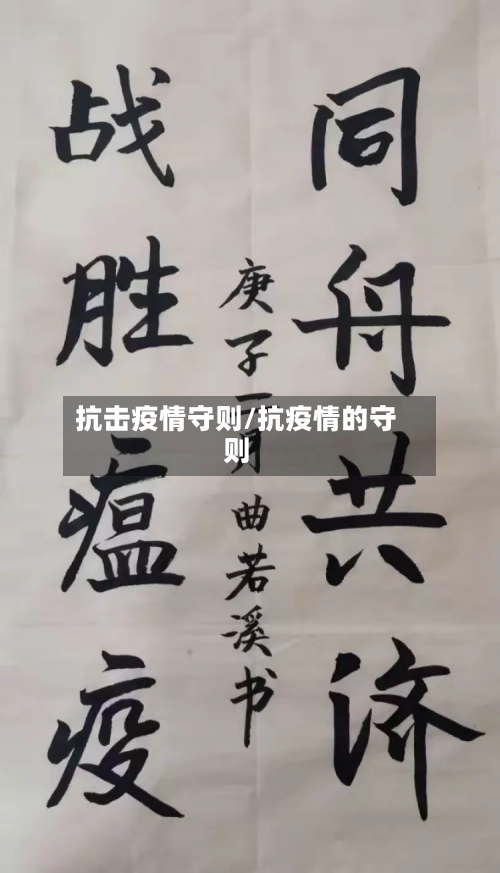 同舟共济
战胜瘟疫
庚子一月曲若溪书
抗击疫情守则/抗疫情的守
则